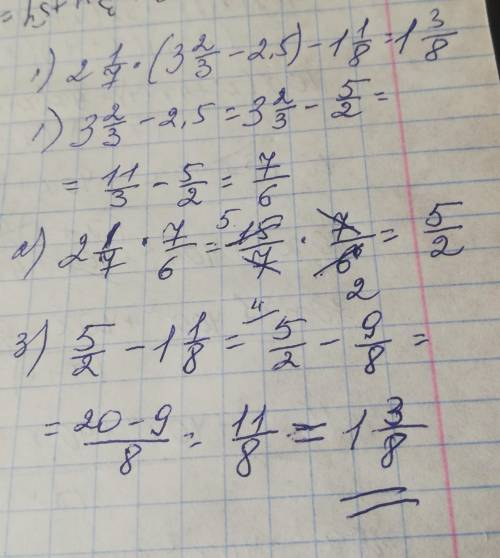 1) 2 1/7 · (3 2/3 - 2,5) - 1 1/8 = 1 3/8
1) 3 2/3 - 2,5 = 3 2/3 - 5/2 =
= 11/3 - 5/2 = 7/6
2) 2 1/7 · 7/6 = 5 15/7 · 7/6 2 = 5/2
3) 5/2 - 1 1/8 = 4/ 5/2 - 9/8 =
= 20-9/8 = 11/8 = 1 3/8